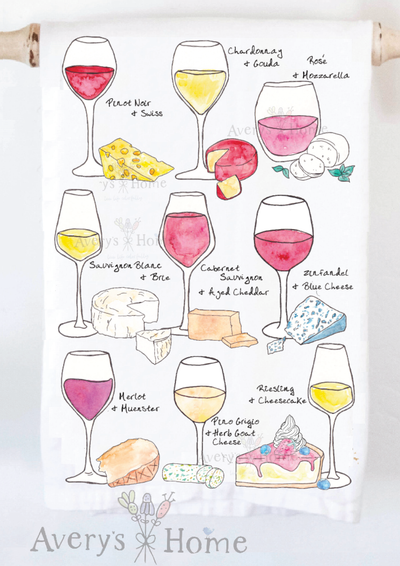 Chardonnay
& Gouda
Rosé
& Mozzarella
Pinot Noir
& Swiss
Avery's Home
Avery's Home
Avery's Home
Sauvignon Blanc
& Brie
Cabernet
Sauvignon
& Aged Cheddar
Zinfandel
& Blue Cheese
Merlot
& Muenster
Pino Grigio
& Herb Goat
Cheese
Riesling
& Cheesecake
Avery's Home